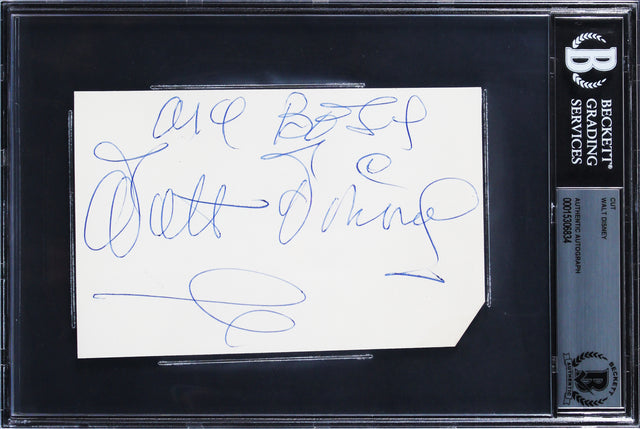 All Best
Walt Disney
BECKETT®
GRADING
SERVICES
CUT
WALT DISNEY
AUTHENTIC AUTOGRAPH
00015306834
BECKETT
AUTHENTIC